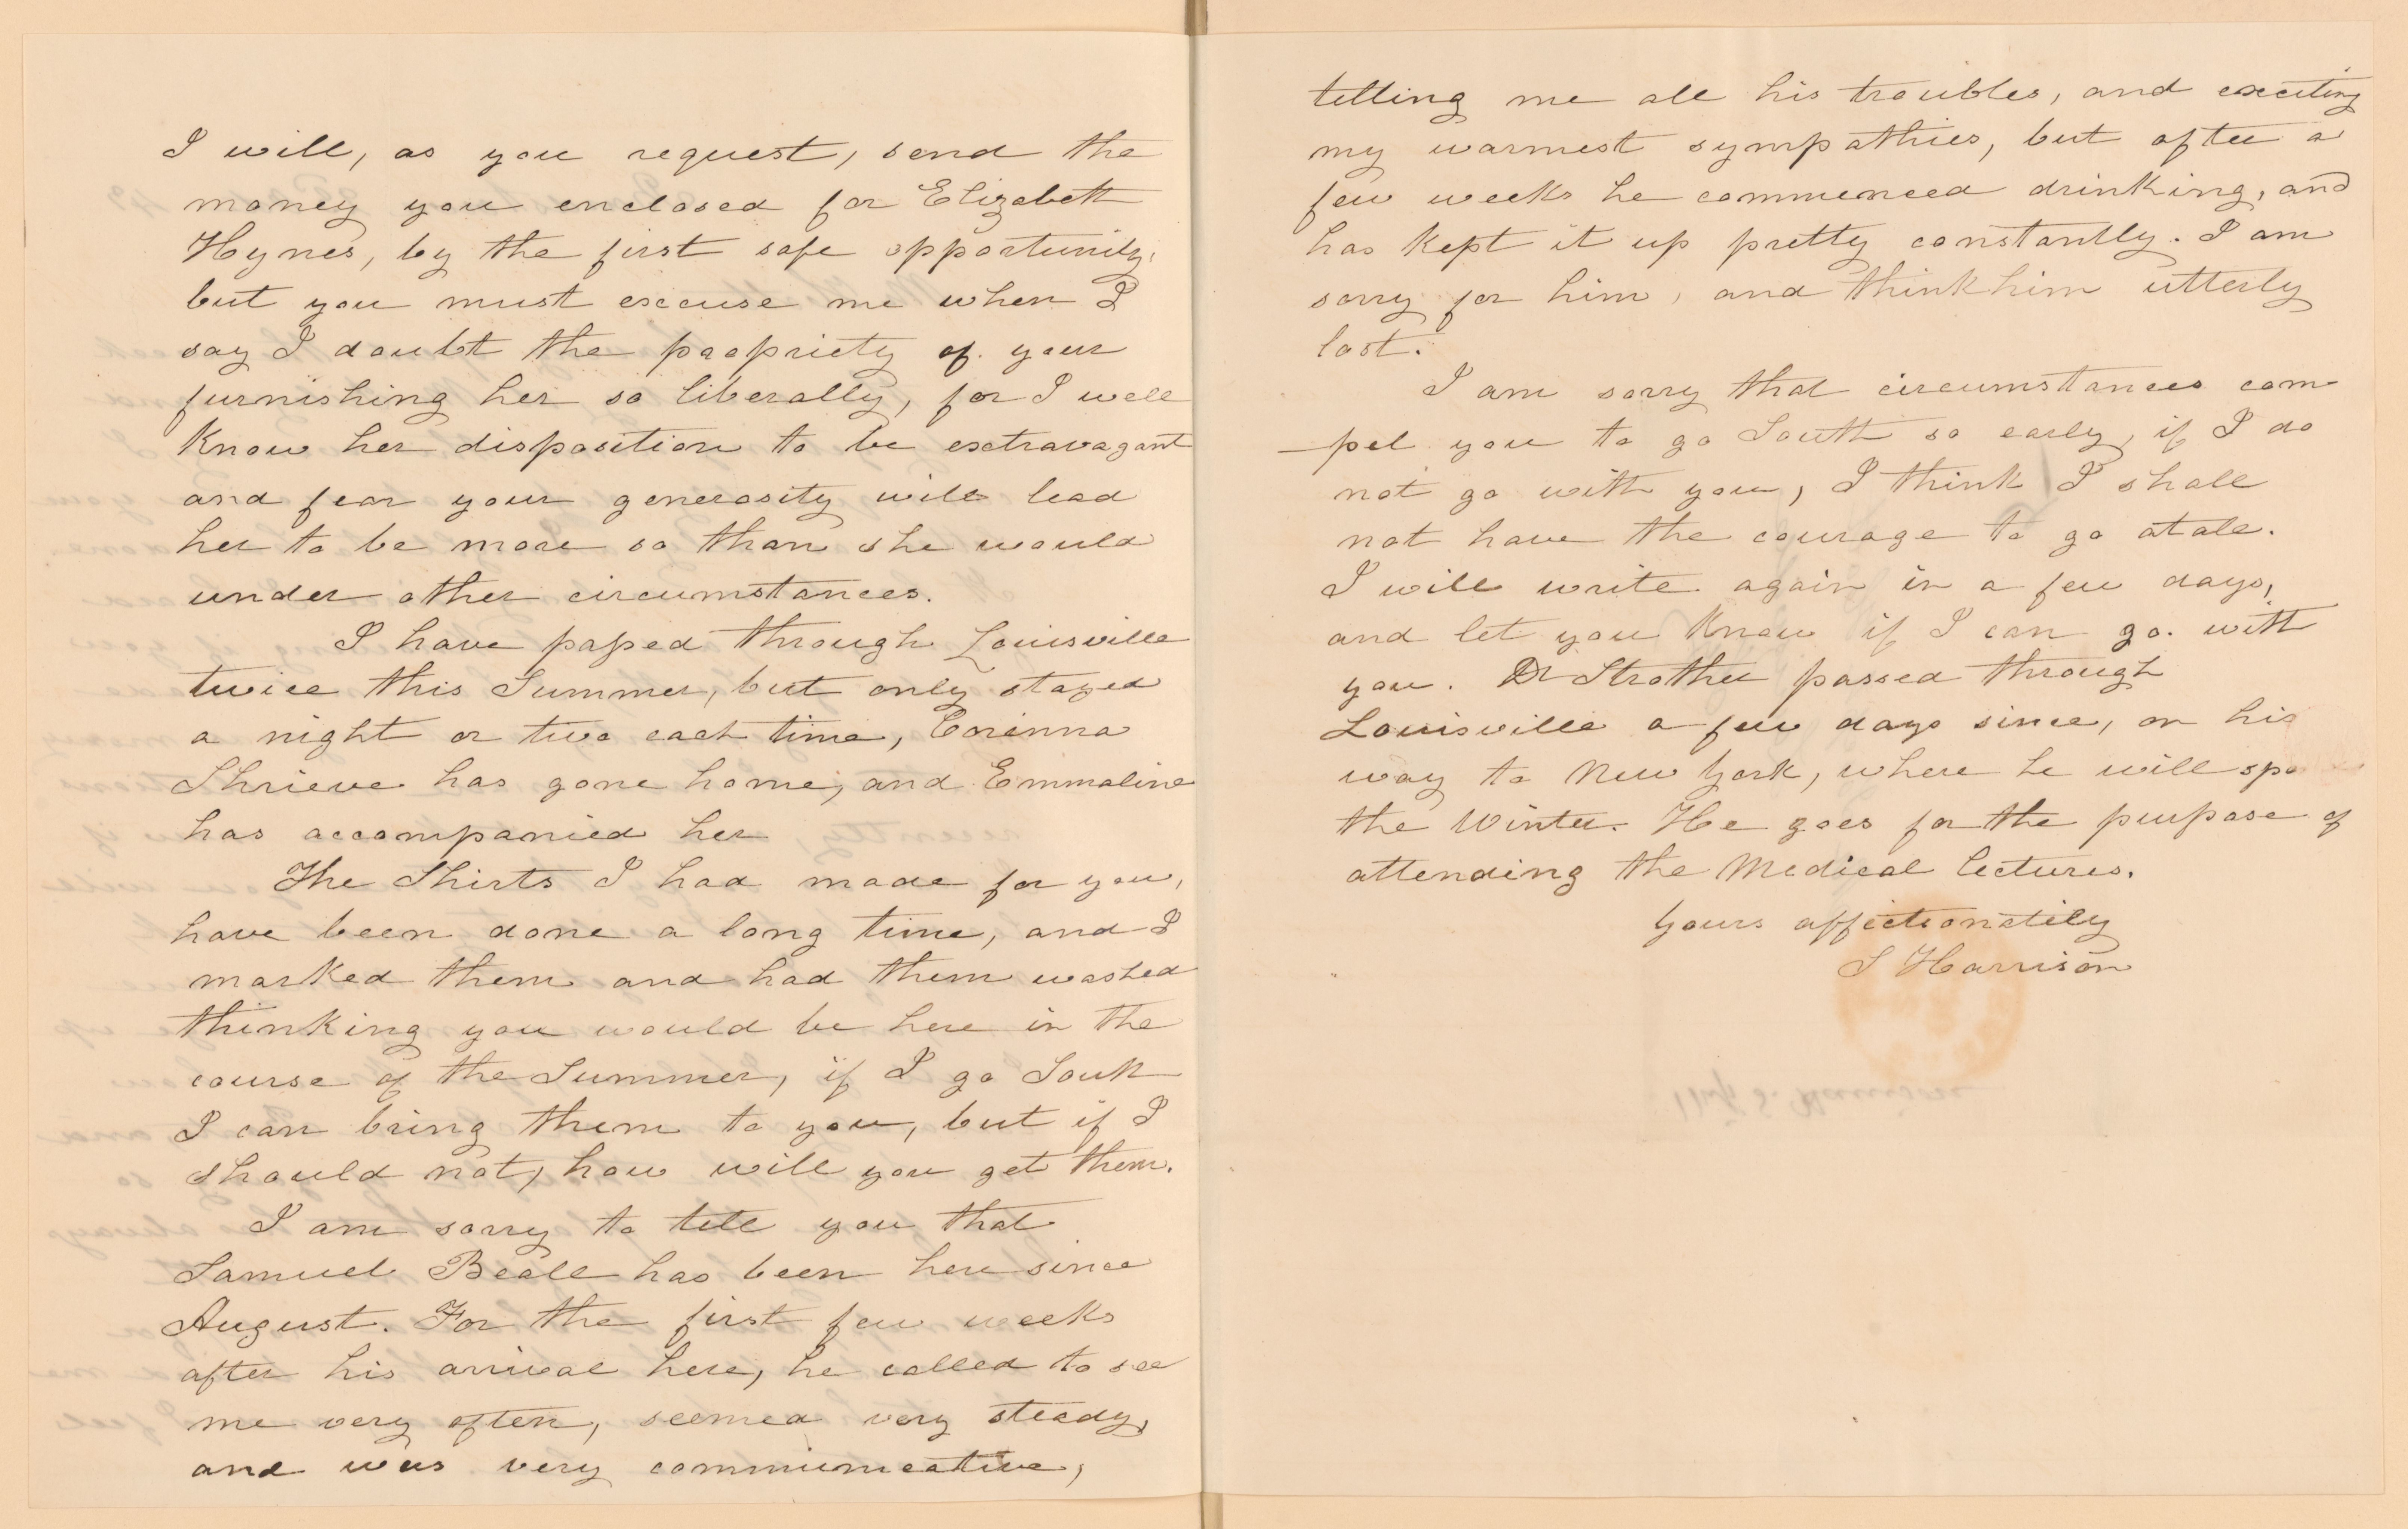 I will, as you request, send the
money you enclosed for Elizabeth
Hynes, by the first safe opportunity,
but you must excuse me when I
say I doubt the propriety of your
furnishing her so liberally, for I well
Know her disposition to be extravagant
and fear your generosity will lead
her to be more so than she would
under other circumstances.
I have passed through Louisville
twice this Summer, but only stayed
a night or two each time, Corinna
Shrieve has gone home, and Emmaline
has accompanied her
The Shirts I had made for you,
have been done a long time, and I
marked them and had them washed
thinking you would be here in the
course of the Summer, if I go South
I can bring them to you, but if I
should not, how will you get them.
I am sorry to tell you that
Samuel Beall has been here since
August. For the first few weeks
after his arrival here, he called to see
me very often, seemed very steady,
and was very communicative,
telling me all his troubles, and exciting
my warmest sympathies, but after a
few weeks he commenced drinking, and
has Kept it up pretty constantly. I am
sorry for him, and think him utterly
lost.
I am sorry that circumstances com
-pel you to go South so early, if I do
not go with you, I think I shall
not have the courage to go at all.
I will write again in a few days,
and let you Know if I can go with
you. Dr Strother passed through
Louisville a few days since, on his
way to New York, where he will
the Winter. He goes for the purpose of
attending the Medical lectures.
Yours affectionately
S Harrison